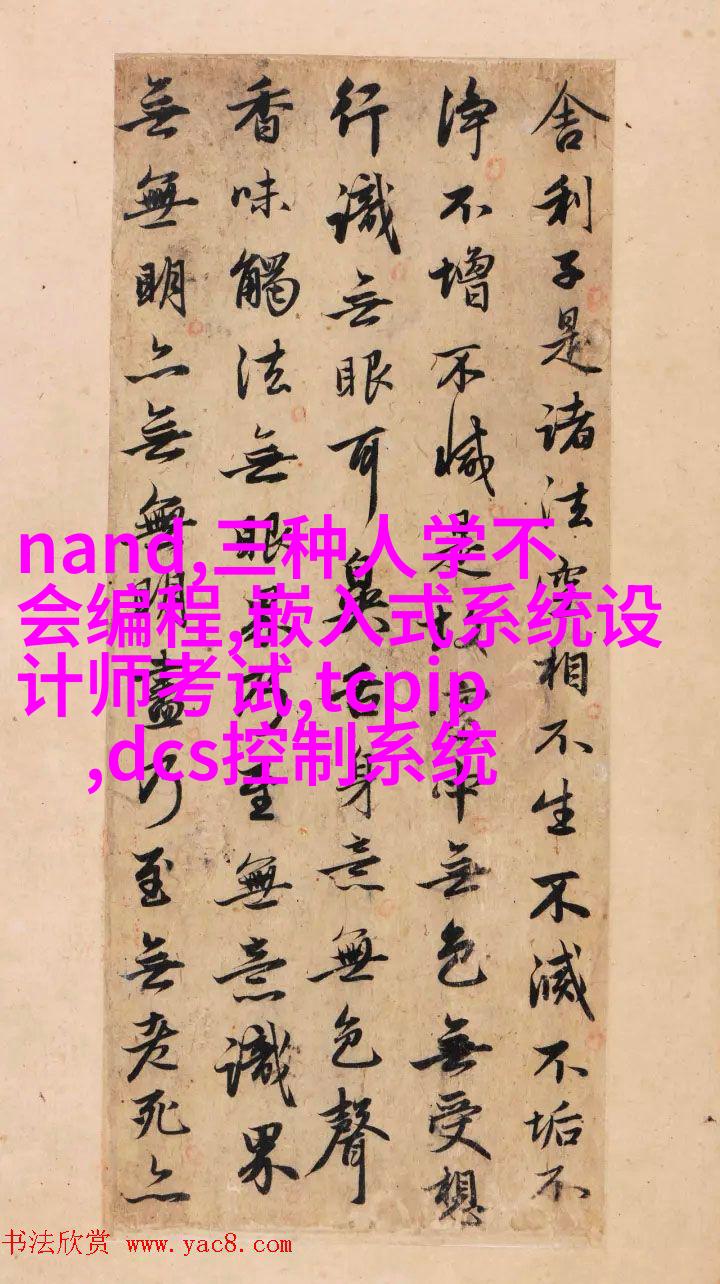 舍利子是諸法空相不生不滅不垢不
淨不增不減是故空中無色無受想
行識無眼耳鼻舌身意無色聲
香味觸法無眼界乃至無意識界
無無明亦無無明盡乃至無老死亦
nand,三种人学不
会编程,嵌入式系统设
计师考试,tcpip
,dcs控制系统
书法欣赏 www.yac8.com